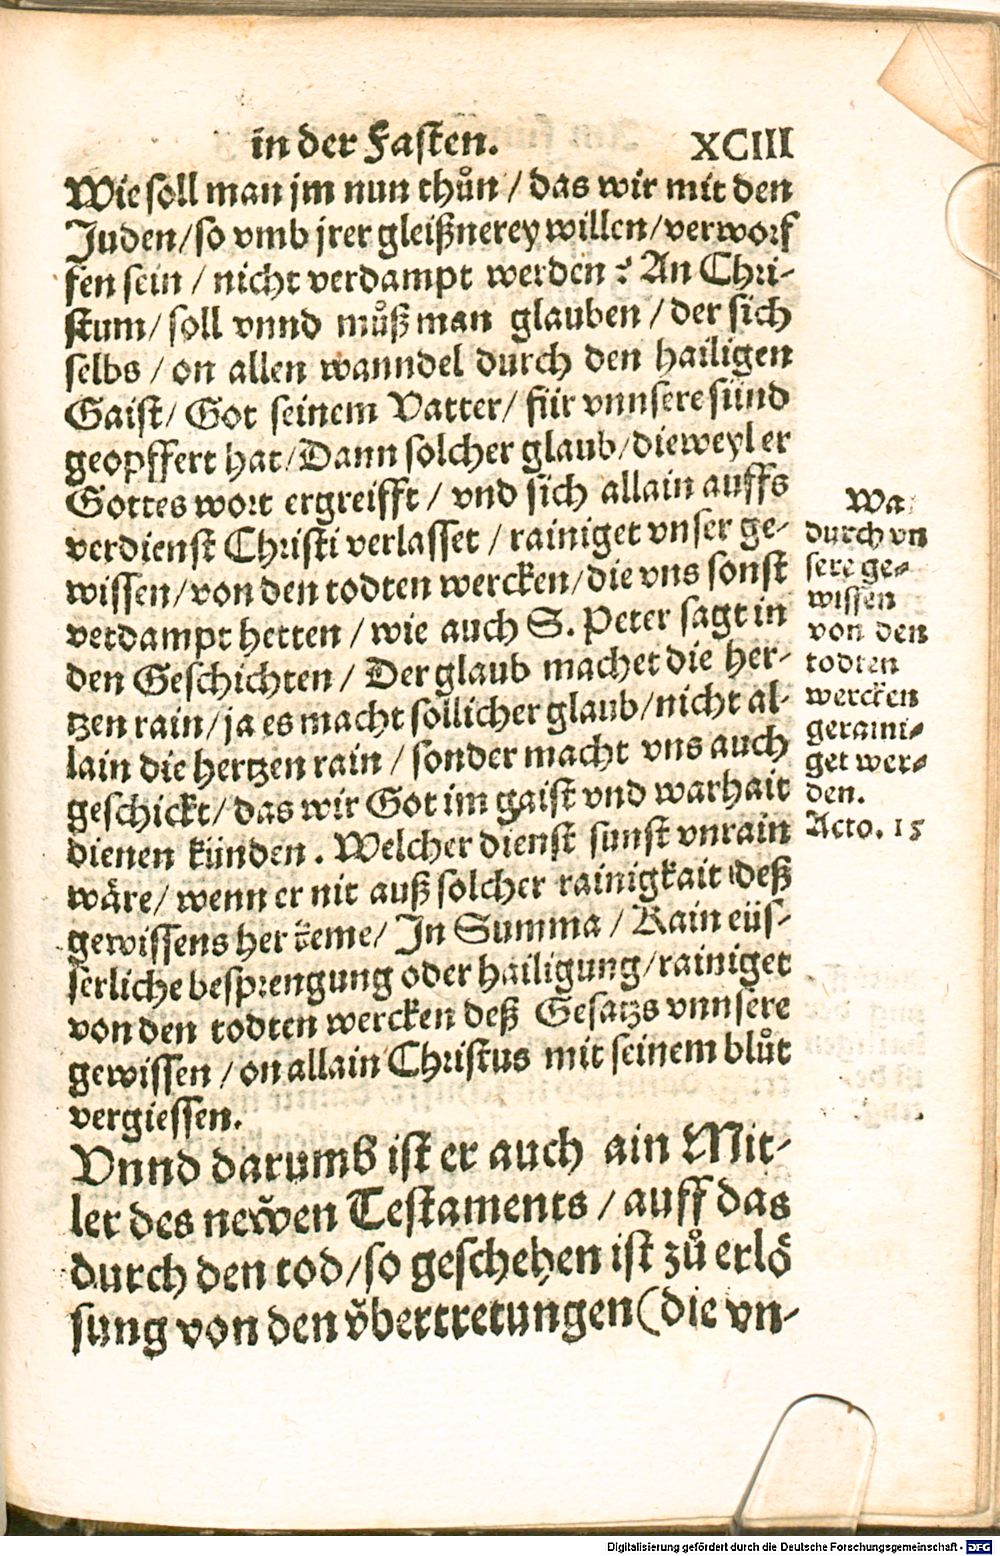 in der Fasten. XCIII
Wie soll man jm nun thůn / das wir mit den
Juden / so vmb jrer gleißnerey willen / verworf
fen sein / nicht verdampt werden? An Chri-
stum / soll vnnd můß man glauben / der sich
selbs / on allen wanndel durch den hailigen
Gaist / Got seinem Vatter / für vnnsere sünd
geopffert hat / Dann solcher glaub / dieweyl er
Gottes wort ergreifft / vnd sich allain auffs
verdienst Christi verlasset / rainiget vnser ge-
wissen / von den todten wercken / die vns sonst
verdampt hetten / wie auch S. Peter sagt in
den Geschichten / Der glaub machet die her-
tzen rain / ja es macht sollicher glaub / nicht al-
lain die hertzen rain / sonder macht vns auch
geschickt / das wir Got im gaist vnd warhait
dienen künden. Welcher dienst sunst vnrain
wäre / wenn er nit auß solcher rainigkait deß
gewissens her keme / In Summa / Kain eüs-
serliche besprengung oder hailigung / rainiget
von den todten wercken deß Gesatzs vnnsere
gewissen / on allain Christus mit seinem blůt
vergiessen.
Vnnd darumb ist er auch ain Mit-
ler des newen Testaments / auff das
durch den tod / so geschehen ist zů erlö
sung von den vbertretungen (die vn-
Wa
durch vn
sere ge-
wissen
von den
todten
wercken
geraini-
get wer-
den.
Acto. 15
Digitalisierung gefördert durch die Deutsche Forschungsgemeinschaft - DFG